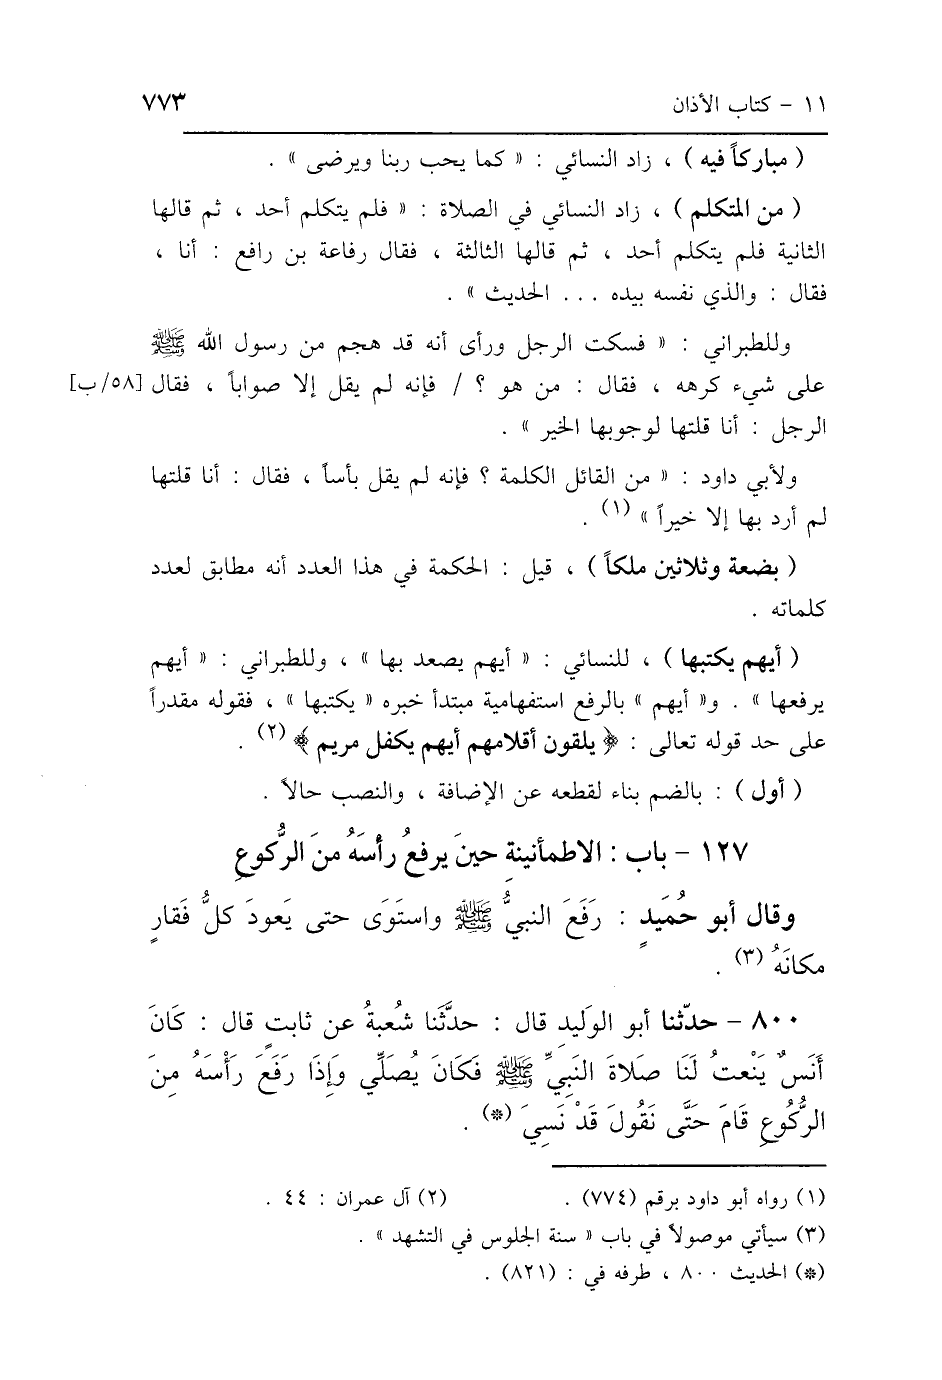 ١١ - كتاب الأذان ٧٧٣
( مباركاً فيه ) ، زاد النسائي : « كما يحب ربنا ويرضى » .
( من المتكلم ) ، زاد النسائي في الصلاة : « فلم يتكلم أحد ، ثم قالها
الثانية فلم يتكلم أحد ، ثم قالها الثالثة ، فقال رفاعة بن رافع : أنا ،
فقال : والذي نفسه بيده ... الحديث » .
وللطبراني : « فسكت الرجل ورأى أنه قد هجم من رسول الله ﷺ
على شيء كرهه ، فقال : من هو ؟ / فإنه لم يقل إلا صواباً ، فقال [٥٨/ب]
الرجل : أنا قلتها لوجوبها الخير » .
ولأبي داود : « من القائل الكلمة ؟ فإنه لم يقل بأساً ، فقال : أنا قلتها
لم أرد بها إلا خيراً » (١) .
( بضعة وثلاثين ملكاً ) ، قيل : الحكمة في هذا العدد أنه مطابق لعدد
كلماته .
( أيهم يكتبها ) ، للنسائي : « أيهم يصعد بها » ، وللطبراني : « أيهم
يرفعها » . و« أيهم » بالرفع استفهامية مبتدأ خبره « يكتبها » ، فقوله مقدراً
على حد قوله تعالى : ﴿ يلقون أقلامهم أيهم يكفل مريم ﴾ (٢) .
( أول ) : بالضم بناء لقطعه عن الإضافة ، والنصب حالاً .
١٢٧ - باب : الاطمأنينةِ حينَ يرفعُ رأسَهُ منَ الرُّكوعِ
وقال أبو حُمَيدٍ : رَفَعَ النبيُّ ﷺ واستَوَى حتى يَعودَ كلُّ فَقارٍ
مكانَهُ (٣) .
٨٠٠ - حدّثنا أبو الوَليدِ قال : حدَّثَنا شُعبةُ عن ثابتٍ قال : كَانَ
أَنَسٌ يَنْعتُ لَنَا صَلاةَ النَبِيِّ ﷺ فَكَانَ يُصَلِّي وَإِذَا رَفَعَ رَأْسَهُ مِنَ
الرُّكُوعِ قَامَ حَتَّى نَقُولَ قَدْ نَسِيَ (*) .
(١) رواه أبو داود برقم (٧٧٤) . (٢) آل عمران : ٤٤ .
(٣) سيأتي موصولاً في باب « سنة الجلوس في التشهد » .
(*) الحديث ٨٠٠ ، طرفه في : (٨٢١) .